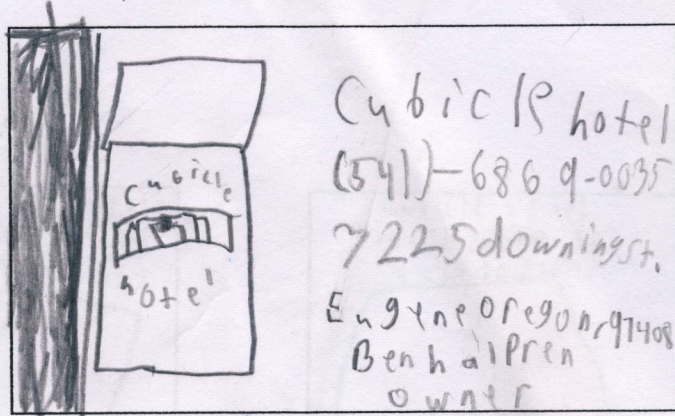 Cubicle
hotel
Cubicle hotel
(541)-6869-0035
7225 downing st.
Eugene oregon, 97408
Ben halpren
owner